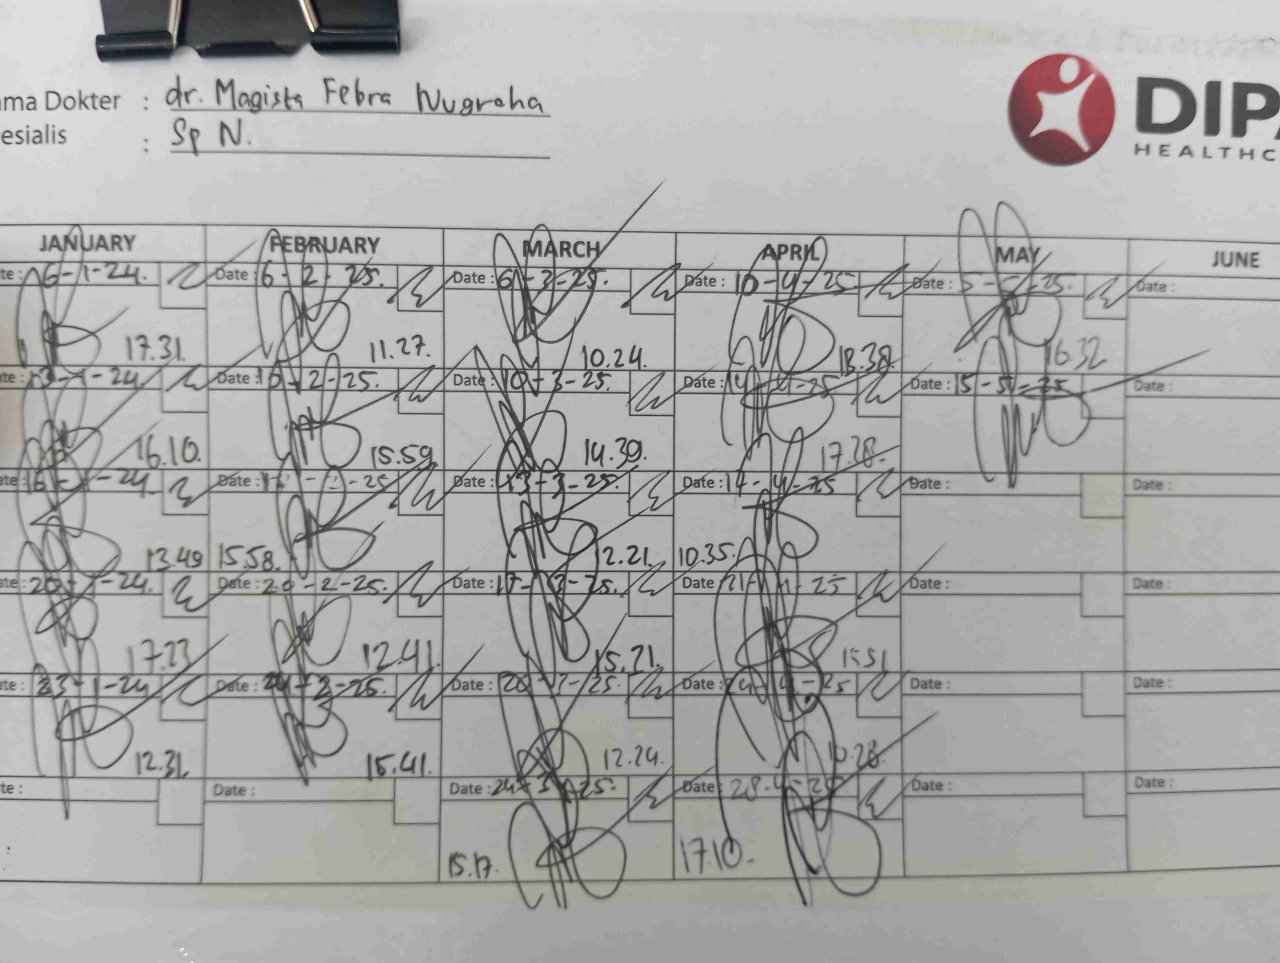 ma Dokter : dr. Magista Febra Nugraha
esialis : Sp N.
DIPA
HEALTHC
JANUARY FEBRUARY MARCH APRIL MAY JUNE
te: 6-1-24. Date: 6-2-25. Date: 6-3-25. Date: 10-4-25 Date: 5-5-25. Date:
17.31 11.27. 10.24. 18.38. 16.32
te: 13-1-24 Date: 10-2-25. Date: 10-3-25. Date: 14-4-25 Date: 15-5-25 Date:
16.10. 15.59 14.39. 17.28.
te: 16-1-24. Date: 25 Date: 13-3-25. Date: 14-4-25 Date: Date:
13.49 15.58. 2.21. 10.35.
te: 20-1-24. Date: 20-2-25. Date: 17-3-25. Date: 21-4-25 Date: Date:
17.23 12.41. 15.21. 15.51
te: 23-1-24 Date: 24-2-25. Date: 20-3-25. Date: 25 Date: Date:
12.31 15.41. 12.24. 10.28.
te: Date: Date: 24-3-25. Date: 28-4-25 Date: Date:
: 15.17. 17.10.